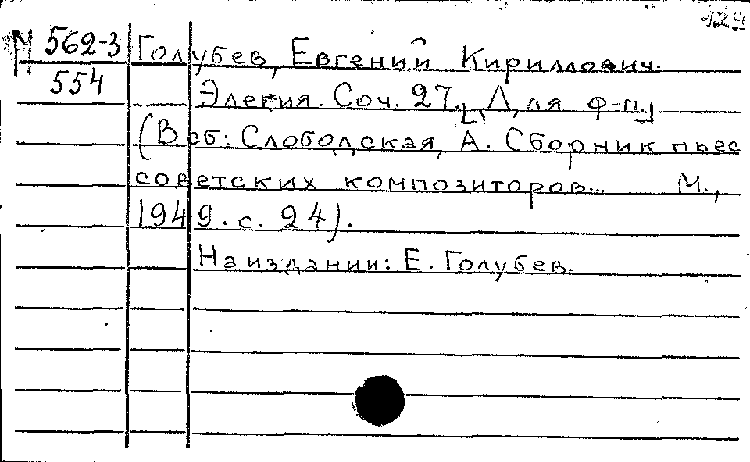 М 562-3
554
Голубев, Евгений Кириллович.
Элегия. Соч. 27. [Для ф-п.]
(В сб: Слободская, А. Сборник пьес
советских композиторов... М.,
1949. с. 24).
На издании: Е. Голубев.